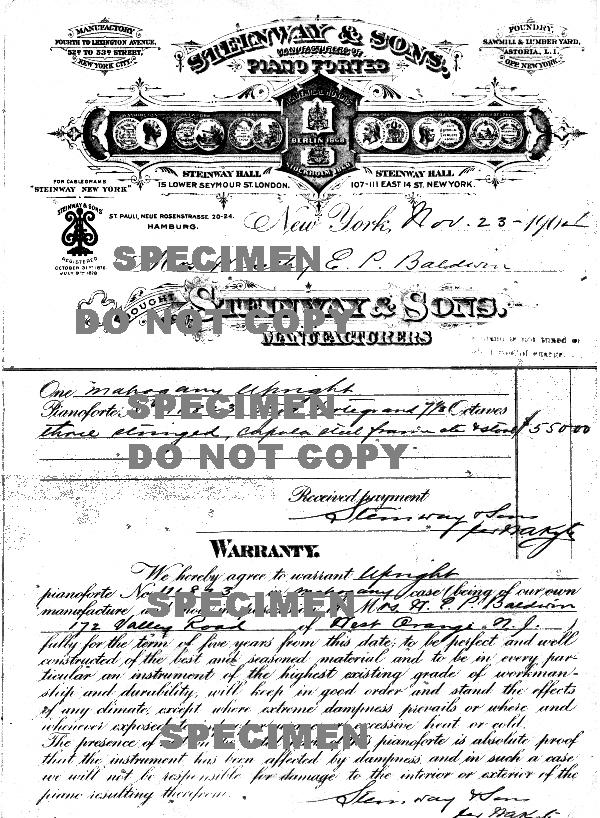 MANUFACTORY
FOURTH TO LEXINGTON AVENUE,
52ND TO 53RD STREET,
NEW YORK CITY.
STEINWAY & SONS,
MANUFACTURERS OF
PIANO FORTES
FOUNDRY,
SAWMILL & LUMBER YARD,
ASTORIA, L.I.
OPP. NEW YORK.
BERLIN 1868
STOCKHOLM
STEINWAY HALL
15 LOWER SEYMOUR ST. LONDON.
STEINWAY HALL
107-111 EAST 14 ST. NEW YORK.
FOR CABLEGRAMS
"STEINWAY NEW YORK"
STEINWAY & SONS
REGISTERED
OCTOBER 31ST 1876
JULY 9TH 1878
ST. PAULI, NEUE ROSENSTRASSE 20-24.
HAMBURG.
New York, Nov. 23-190
SPECIMEN
E. P. Baldwin
BOUGHT
STEINWAY & SONS.
DO NOT COPY
MANUFACTURERS
is not tuned or
of charge.
One Mahogany Upright
Pianoforte 7 1/3 Octaves
SPECIMEN
stringed, Cupola steel frame $550 00
DO NOT COPY
Received payment
Steinway & Sons
WARRANTY.
We hereby agree to warrant Upright
pianoforte No. mahogany case (being of our own
manufacture Mrs E. P. Baldwin
SPECIMEN
172 Valley Road of West Orange N. J. )
fully for the term of five years from this date; to be perfect and well
constructed of the best and seasoned material and to be in every par-
ticular an instrument of the highest existing grade of workman-
ship and durability, will keep in good order and stand the effects
of any climate, except where extreme dampness prevails or where and
whenever exposed to excessive heat or cold.
SPECIMEN
The presence of pianoforte is absolute proof
that the instrument has been affected by dampness and in such a case
we will not be responsible for damage to the interior or exterior of the
piano resulting therefrom.
Steinway & Sons